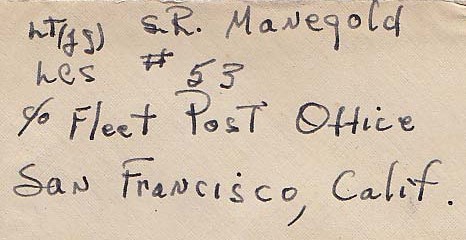 LT(jg) S.R. Manegold
LCS # 53
c/o Fleet Post Office
San Francisco, Calif.